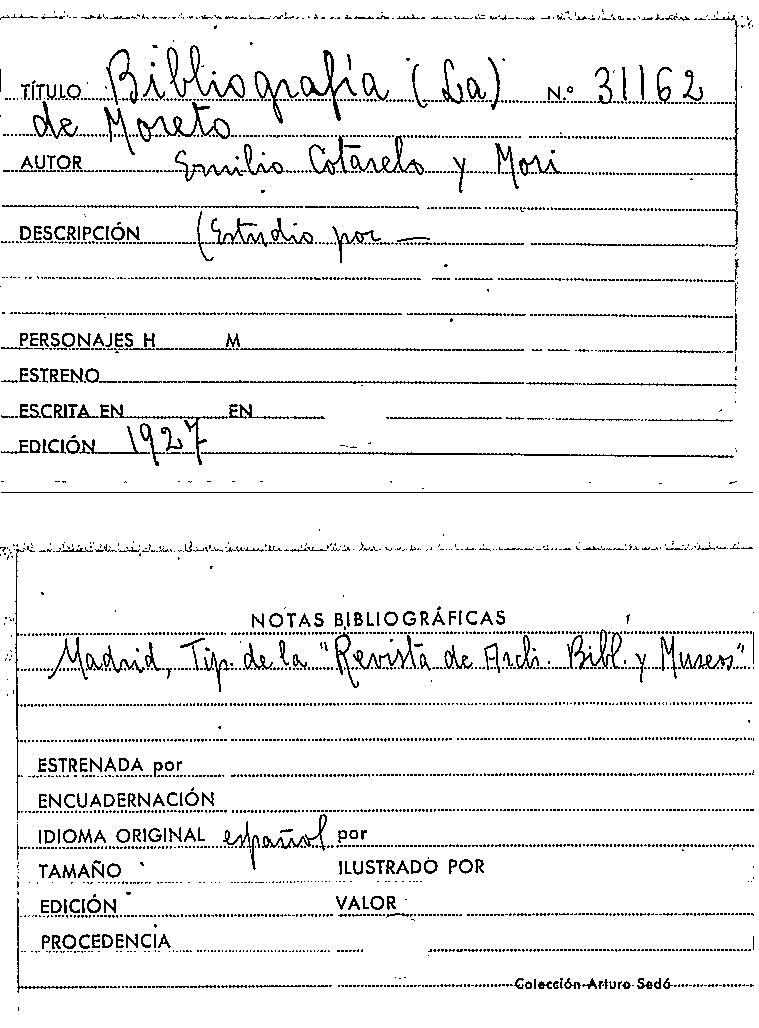 TÍTULO Bibliografía (La) N.º 31162
de Moreto
AUTOR Emilio Cotarelo y Mori
DESCRIPCIÓN (Estudio por —
PERSONAJES H M
ESTRENO
ESCRITA EN EN
EDICIÓN 1927
NOTAS BIBLIOGRÁFICAS
Madrid, Tip. de la "Revista de Arch. Bibl. y Museos"
ESTRENADA por
ENCUADERNACIÓN
IDIOMA ORIGINAL español por
TAMAÑO ILUSTRADO POR
EDICIÓN VALOR
PROCEDENCIA
Colección Arturo Sedó